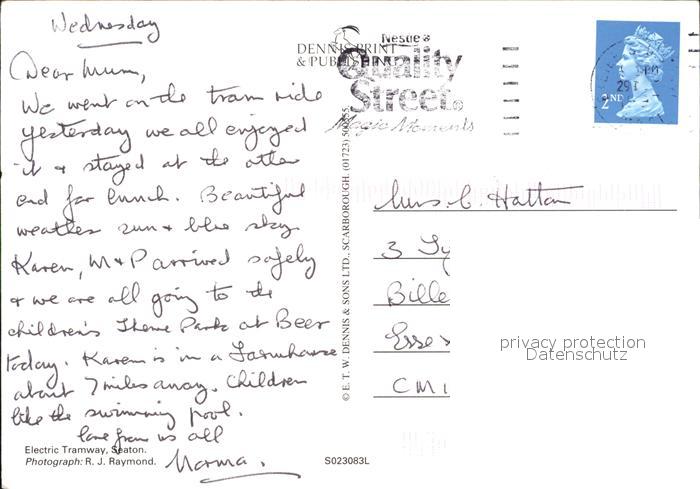 Wednesday
Dear Mum,
We went on the tram ride
yesterday we all enjoyed
it & stayed at the other
end for lunch. Beautiful
weather sun & blue sky
Karen, M & P arrived safely
& we are all going to the
children's Theme Park at Beer
today. Karen is in a Farmhouse
about 7 miles away. Children
like the swimming pool.
love from us all
Norma.
Electric Tramway, Seaton.
Photograph: R. J. Raymond.
S023083L
© E. T. W. DENNIS & SONS LTD., SCARBOROUGH. (01723)
DENNIS PRINT
& PUBLISHING
Nestlé
Quality
Street
Magic Moments
2ND
Mrs. C. Hatton
3
Bille
Esse
CM1
privacy protection
Datenschutz